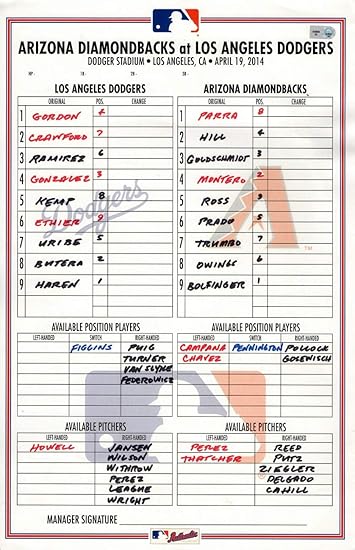 ARIZONA DIAMONDBACKS at LOS ANGELES DODGERS
DODGER STADIUM • LOS ANGELES, CA • APRIL 19, 2014
HP - 1B - 2B - 3B -
LOS ANGELES DODGERS
ORIGINAL POS. CHANGE
1 GORDON 4
2 CRAWFORD 7
3 RAMIREZ 6
4 GONZALEZ 3
5 KEMP 8
6 ETHIER 9
7 URIBE 5
8 BUTERA 2
9 HAREN 1
Dodgers
ARIZONA DIAMONDBACKS
ORIGINAL POS. CHANGE
1 PARRA 8
2 HILL 4
3 GOLDSCHMIDT 3
4 MONTERO 2
5 ROSS 9
6 PRADO 5
7 TRUMBO 7
8 OWINGS 6
9 BOLSINGER 1
AVAILABLE POSITION PLAYERS
LEFT-HANDED SWITCH RIGHT-HANDED
FIGGINS PUIG
TURNER
VAN SLYKE
FEDEROWICZ
AVAILABLE POSITION PLAYERS
LEFT-HANDED SWITCH RIGHT-HANDED
CAMPANA PENNINGTON POLLOCK
CHAVEZ GOSEWISCH
AVAILABLE PITCHERS
LEFT-HANDED RIGHT-HANDED
HOWELL JANSEN
WILSON
WITHROW
PEREZ
LEAGUE
WRIGHT
AVAILABLE PITCHERS
LEFT-HANDED RIGHT-HANDED
PEREZ REED
THATCHER PUTZ
ZIEGLER
DELGADO
CAHILL
MANAGER SIGNATURE
Authentic